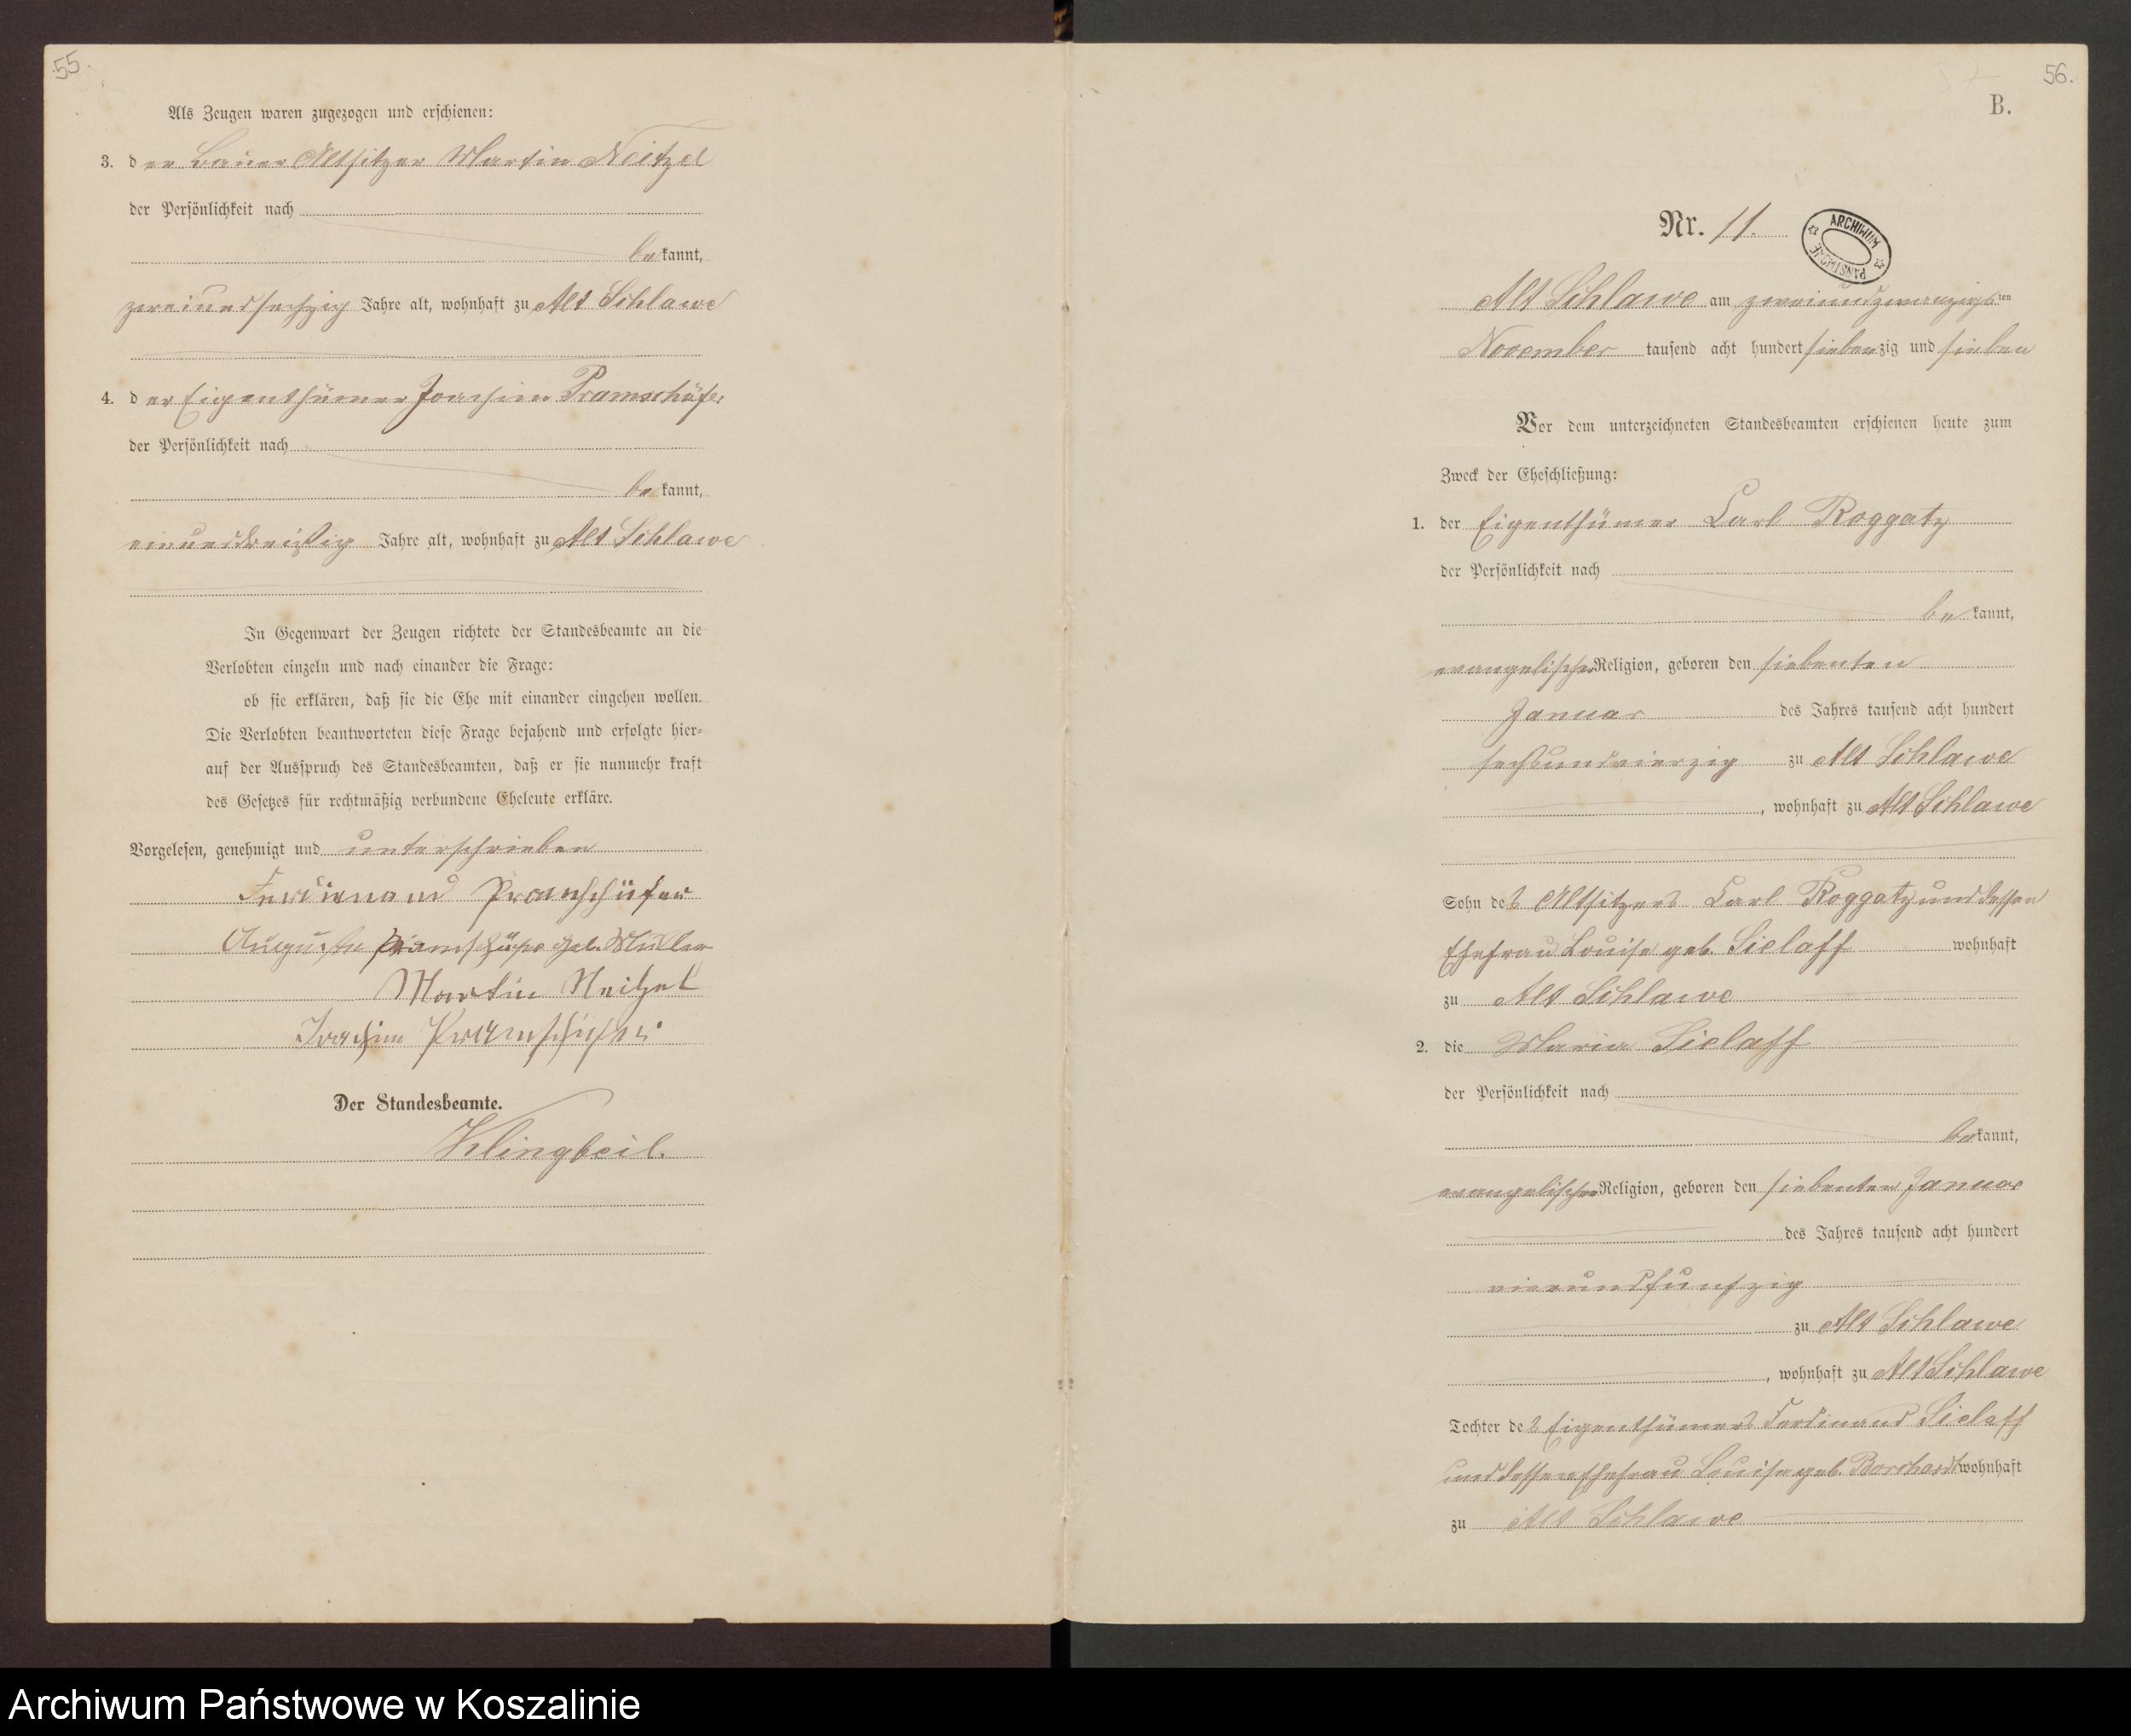 55.
Als Zeugen waren zugezogen und erschienen:
3. der Bauer Altsitzer Martin Neitzel
der Persönlichkeit nach
bekannt,
zweiundsechzig Jahre alt, wohnhaft zu Alt Schlawe
4. der Eigenthümer Joachim Pramschüfer
der Persönlichkeit nach
bekannt,
einunddreißig Jahre alt, wohnhaft zu Alt Schlawe
In Gegenwart der Zeugen richtete der Standesbeamte an die
Verlobten einzeln und nach einander die Frage:
ob sie erklären, daß sie die Ehe mit einander eingehen wollen.
Die Verlobten beantworteten diese Frage bejahend und erfolgte hier-
auf der Ausspruch des Standesbeamten, daß er sie nunmehr kraft
des Gesetzes für rechtmäßig verbundene Eheleute erkläre.
Vorgelesen, genehmigt und unterschrieben
Ferdienand Pramschüfer
Auguste Pramschüfer geb. Müller
Martin Neitzel
Joachim Pramschüfer
Der Standesbeamte.
Klingbeil.
56.
B.
Nr. 11.
ARCHIWUM PAŃSTWOWE
Alt Schlawe am zweiundzwanzigsten
November tausend acht hundert siebenzig und sieben
Vor dem unterzeichneten Standesbeamten erschienen heute zum
Zweck der Eheschließung:
1. der Eigenthümer Carl Roggatz
der Persönlichkeit nach
bekannt,
evangelischer Religion, geboren den siebenten
Januar des Jahres tausend acht hundert
sechsundvierzig zu Alt Schlawe
, wohnhaft zu Alt Schlawe
Sohn des Altsitzers Carl Roggatz und dessen
Ehefrau Louise geb. Sielaff wohnhaft
zu Alt Schlawe
2. die Maria Sielaff
der Persönlichkeit nach
bekannt,
evangelischer Religion, geboren den siebenten Januar
des Jahres tausend acht hundert
vierundfunfzig
zu Alt Schlawe
, wohnhaft zu Alt Schlawe
Tochter des Eigenthümers Ferdinand Sielaff
und dessen Ehefrau Louise geb. Borchardt wohnhaft
zu Alt Schlawe
Archiwum Państwowe w Koszalinie